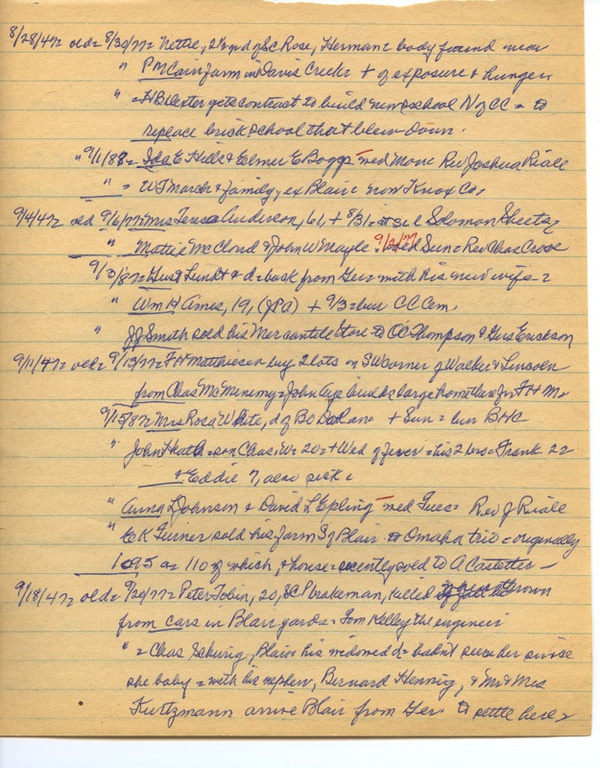 8/28/47= old= 8/30/77= Nettie, 2½ yrd of SC Rose, Herman= body found near
" PM Cain farm in Davis Creek= + of exposure & hunger=
" =HB Dexter gets contract to build new school N of CC = to
replace brick school that blew down.
" 9/1/88= Ida E Hills & Elmer E Boggs med Mon= Rev Joshua Riale
" = WJ March & family, ex Blair= now Knox Co,
9/4/47 old 9/6/77= Mrs Teresa Anderson, 61, + 8/31= at sil Solomon Sheets
" Mattie McCloud & John W Mayle 9/2/77 Sun= Rev Chas Crose
9/3/87= Gus Lundt & d= back from Ger with his new wife=
" Wm H Ames, 19, (JPa) + 9/3= bur CC Cem.
" JJ Smith sold his Mercantile store to CC Thompson & Gus Erickson
9/11/47 old= 9/13/77= FH Matthiesen buy 2 lots on SW corner of Walker & Lincoln
from Chas McMenemy= John Aye builds large home there for FH M=
9/15/87= Mrs Rosa White, d of BO + Sun= bur BHC
" John Heath= son Chas W= 20= + Wed of fever= his 2 bros= Frank 22
& Eddie 7, also sick=
" Anna L Johnson & David L Epling med Tues= Rev J Riale
" EK Turner sold his farm S of Blair to Omaha trio= originally
1095 a= 110 of which, & house= recently sold to A Castetter
9/18/47= old= 9/20/77= Peter Tobin, 20, SC Pbrakeman, killed thrown
from cars in Blair yards= Tom Kelley the engineer
" = Chas Schurig, Blair= his widowed d= hadn't seen her since
she baby= with his nephew, Bernard Hennig, & Mr & Mrs
Kurtzmann arrive Blair from Ger to settle here=